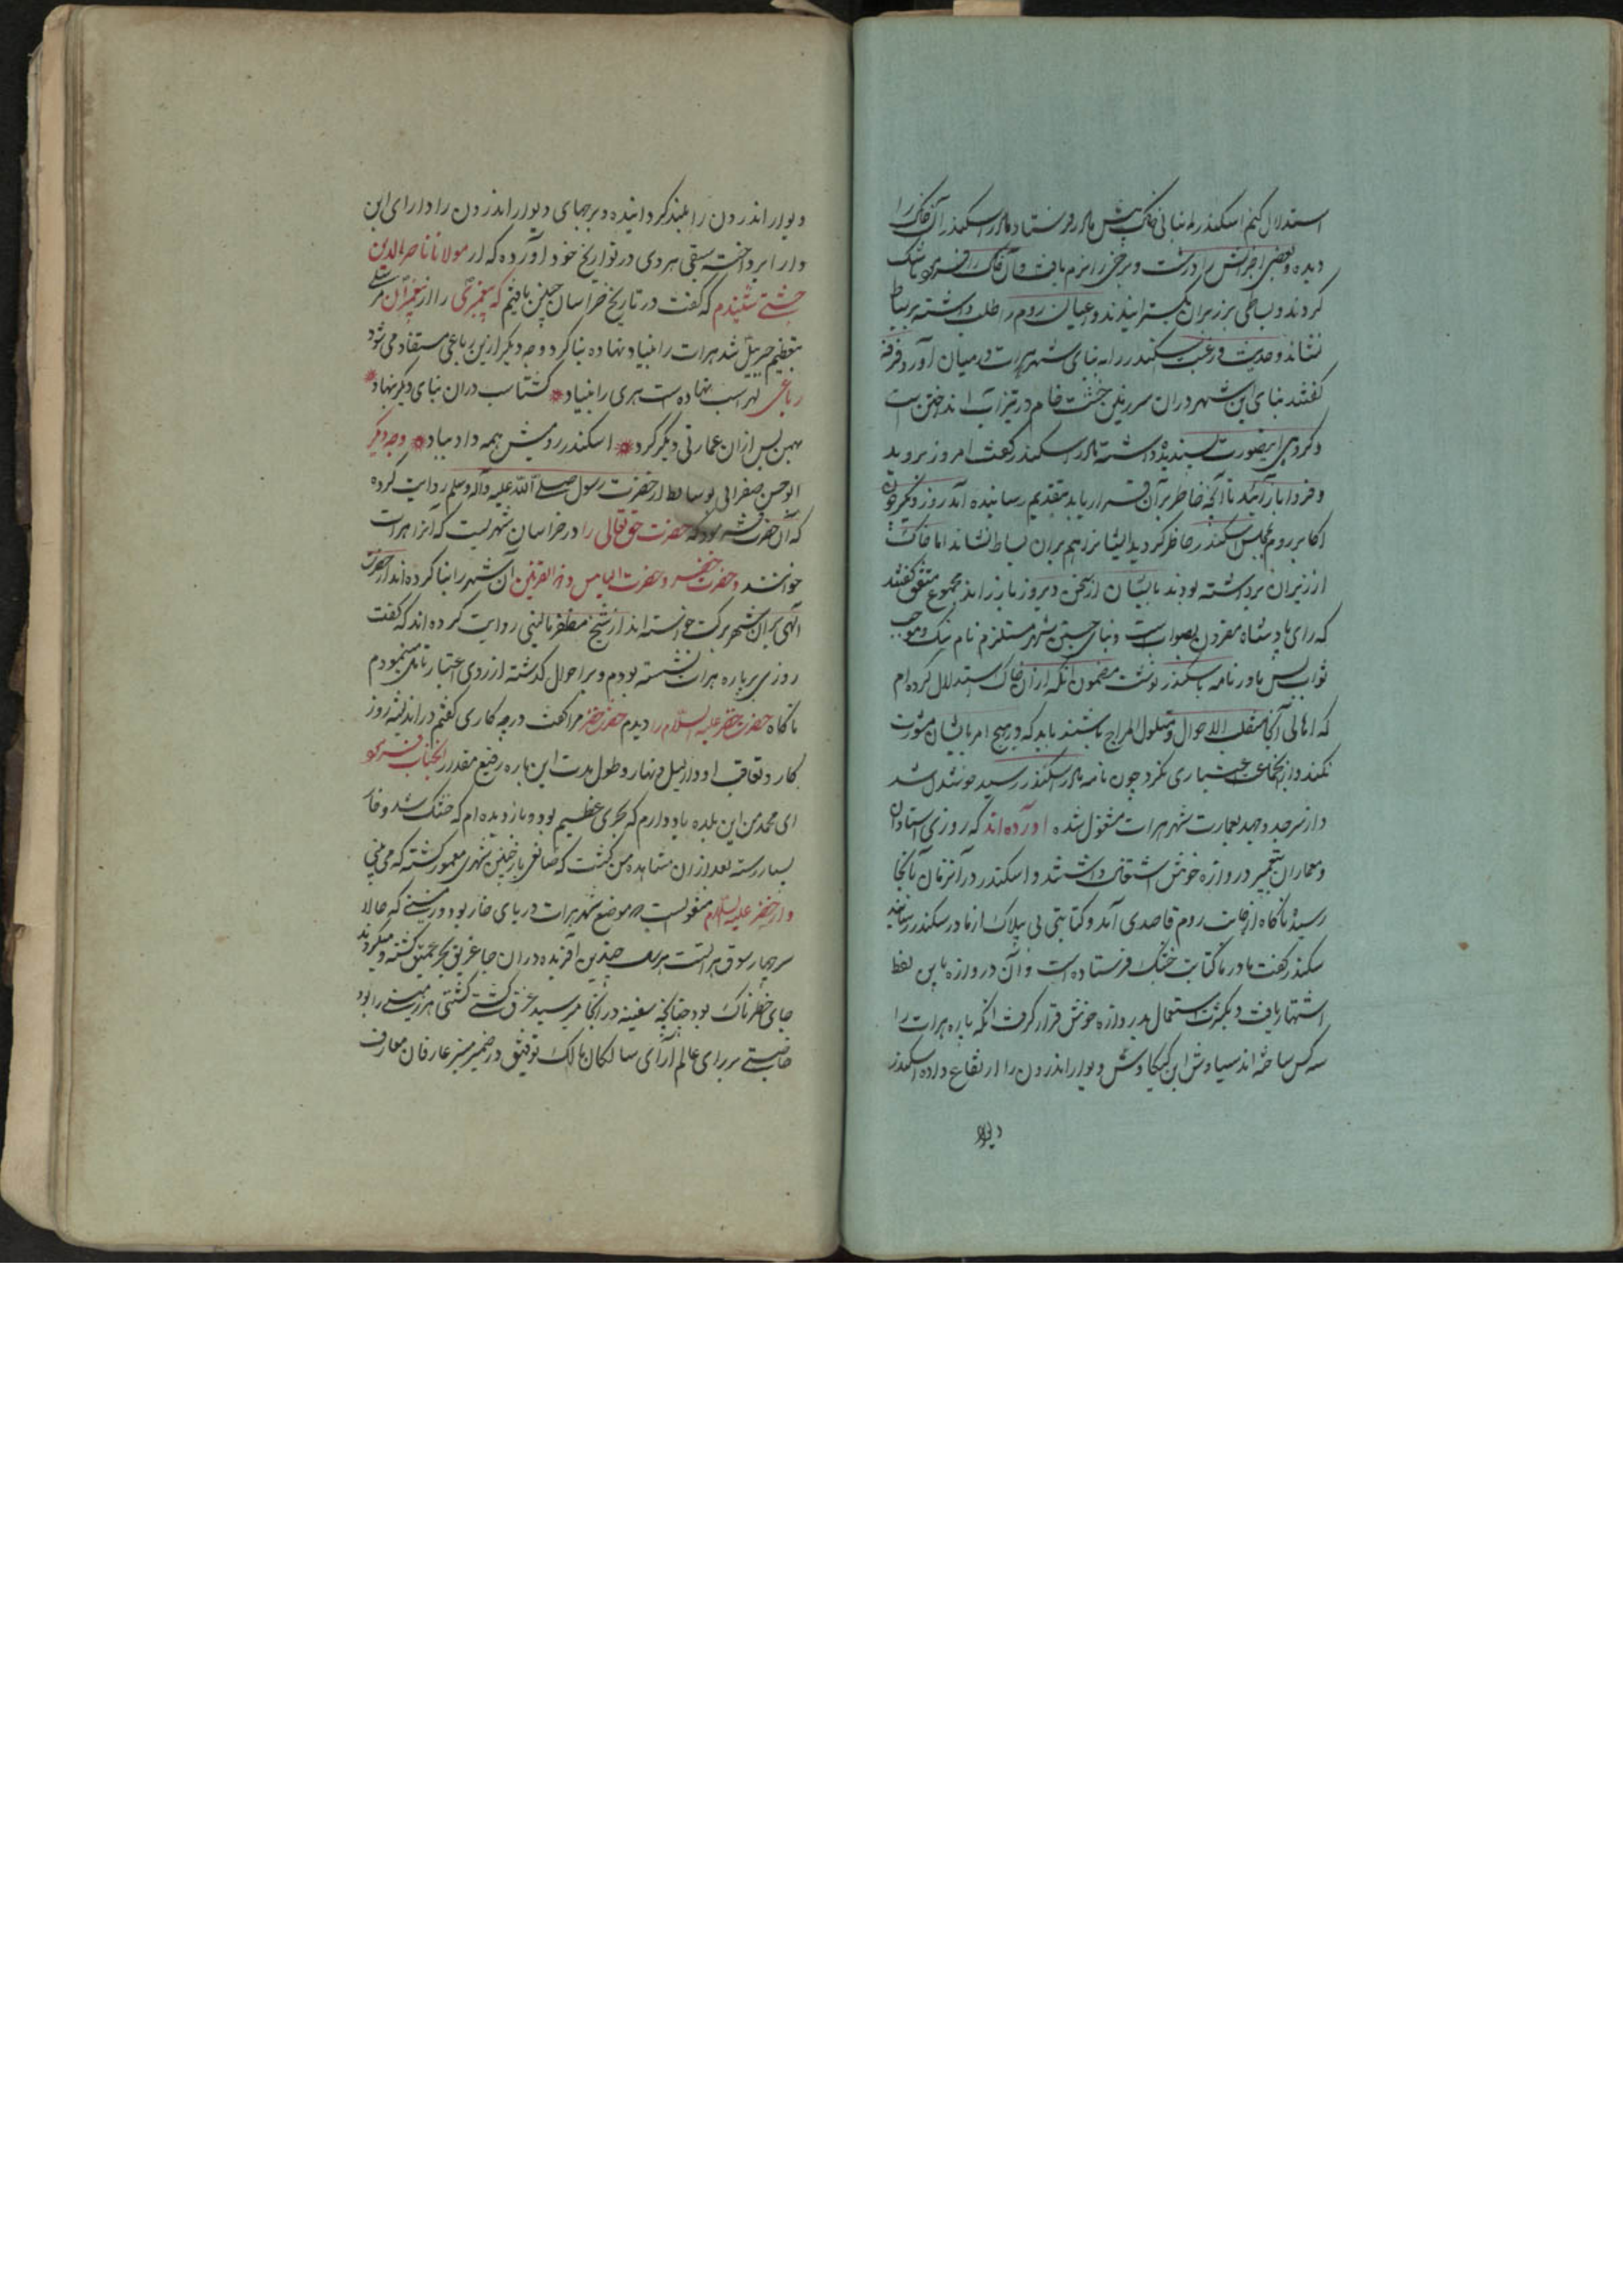 استدلال کنم اسکندر انبانی خاک پیش مادر فرستاد مادر اسکندر آن خاک را
دیده بعضی اجزایش را درشت و برخی را نرم یافت و آن خاک را فرمود تا تنک
کردند و بساطی بر زبر آن بگسترانیدند و اعیان روم را طلب داشته بر بساط
نشاند و حدیث و رغبت اسکندر را به بنای شهر هرات در میان آورد فرقه
گفتند بنای این شهر در آن سرزمین خشت خام در تیزاب انداختن است
و گروهی این صورت پسندیده داشته مادر اسکندر گفت امروز بروید
و فردا باز آئید تا آنچه خاطر بر آن قرار یابد بتقدیم رسانیده آید روز دیگر چون
اکابر روم بمجلس اسکندر حاظر کردید ایشانرا هم بران بساط نشاند اما خاک
از زیر آن برداشته بودند با ایشان از سخن دیروز باز راند مجموع متفق گفتند
که رای پادشاه مقرون بصواب است و بنای چنین شهر مستلزم نام نیک و موجب
ثواب پس مادر نامه باسکندر نوشت مضمون آنکه از آن خاک استدلال کرده ام
که اهالی آنجا منقلب الاحوال و متلون المزاج باشند باید که در هیچ امر با ایشان مشورت
نکند و از آنجماعت اعتباری نگیرد چون نامه مادر اسکندر رسید خوشدل شد
و از سر جد و جهد بعمارت شهر هرات مشغول شده آورده اند که روزی استادان
و معماران بتعمیر دروازه خوش اشتغال داشتند و اسکندر در آنزمان آنجا
رسید ناگاه از جانب روم قاصدی آمد و کتابتی از مادر سکندر رسانید
سکندر گفت مادر ما کتابت خشک فرستاده است و آن دروازه باین لفظ
اشتهار یافت و بکثرت استعمال بدروازه خوش قرار گرفت آنکه باره هرات را
سه کس ساخته اند سیاوش ابن کیکاوس دیوار اندرون را ارتفاع داده اسکندر
دیوار
دیوار اندرون را بلند کردانیده و برجهای دیوار اندرون را دارای ابن
دارا پرداخته سیفی هروی در تواریخ خود آورده که از مولانا ناصرالدین
چشتی شنیدم که گفت در تاریخ خراسان چنین یافتیم که پیغمبری را از پیغمبران مرسل
بتعظیم جبرئیل شد هرات را بنیاد نهاده بنا کرد وجه دیگر ازین رباعی مستفاد می شود
رباعی لهراسب نهاده است هری را بنیاد * گشتاسب دران بنای دیگر بنهاد *
بهمن پس ازان عمارتی دیگر کرد * اسکندر رومیش همه داد بباد * وجه دیگر
ابوالحسن صفرانی بوسائط از حضرت رسول صلی الله علیه و آله وسلم روایت کرده
که آن حضرت فرمود که حضرت حق تعالی را در خراسان شهریست که آنرا هرات
خوانند و حضرت خضر و حضرت الیاس و ذوالقرنین آن شهر را بنا کرده اند از حضرت
الهی بران شهر برکت خواسته اند از شیخ مظفر مالینی روایت کرده اند که گفت
روزی بر باره هرات نشسته بودم و بر احوال گذشته از روی اعتبار تامل مینمودم
ناگاه حضرت خضر علیه السلام را دیدم حضرت خضر مرا گفت در چه کاری گفتم در اندیشه روز
کار و تعاقب ادوار لیل و نهار و طول مدت این باره رفیع مقدار آنجناب فرمود
ای محمد من این بلده یاد دارم که بحری عظیم بود و باز دیده ام که خشک شد
بسیار رسته بعد ازان مشاهده من گشت که باز چنین شهری معمور گشته که می بینی
و از خضر علیه السلام منقولست که موضع شهر هرات دریای خار بود و زمینی که حالا
سر چهار سوق هرات است چندین آفریده دران جا غریق بحر عمیق گشته و میگردند
جای خطرناک بود چنانکه سفینه در آنجا میرسید غرق گشتی هر زمینی را بود
خاصیتی بر رای عالم آرای سالکان مسالک توفیق و ضمیر منیر عارفان معارف